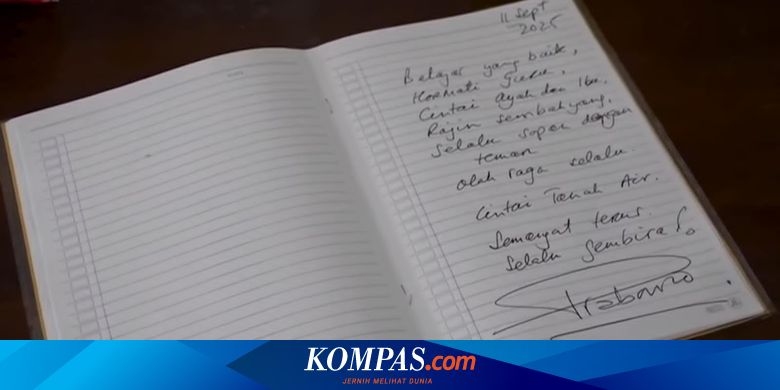 11 Sept
2025
Belajar yang baik,
Hormati guru,
Cintai ayah dan Ibu.
Rajin sembahyang,
Selalu sopan dengan
teman
Olah raga selalu.
Cintai Tanah Air.
Semangat terus.
Selalu gembira
Prabowo
KOMPAS.com
JERNIH MELIHAT DUNIA